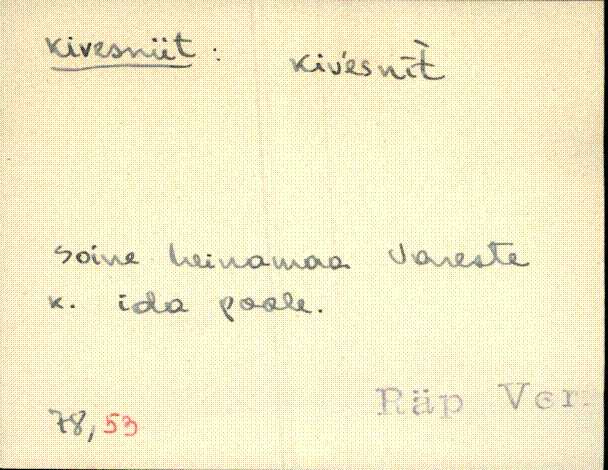 kivesniit : kiv́esnīt̀
soine heinamaa Vareste
k. ida poole.
78,53 Räp